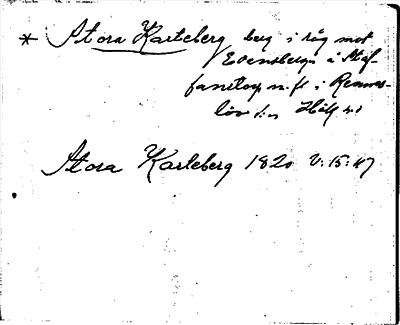 * Stora Karleberg berg i råg mot
Evensberga å Staf-
fanstorp n:ft i Rennes-
löv s:n Hall. l.
Stora Karleberg 1820 V:15:47